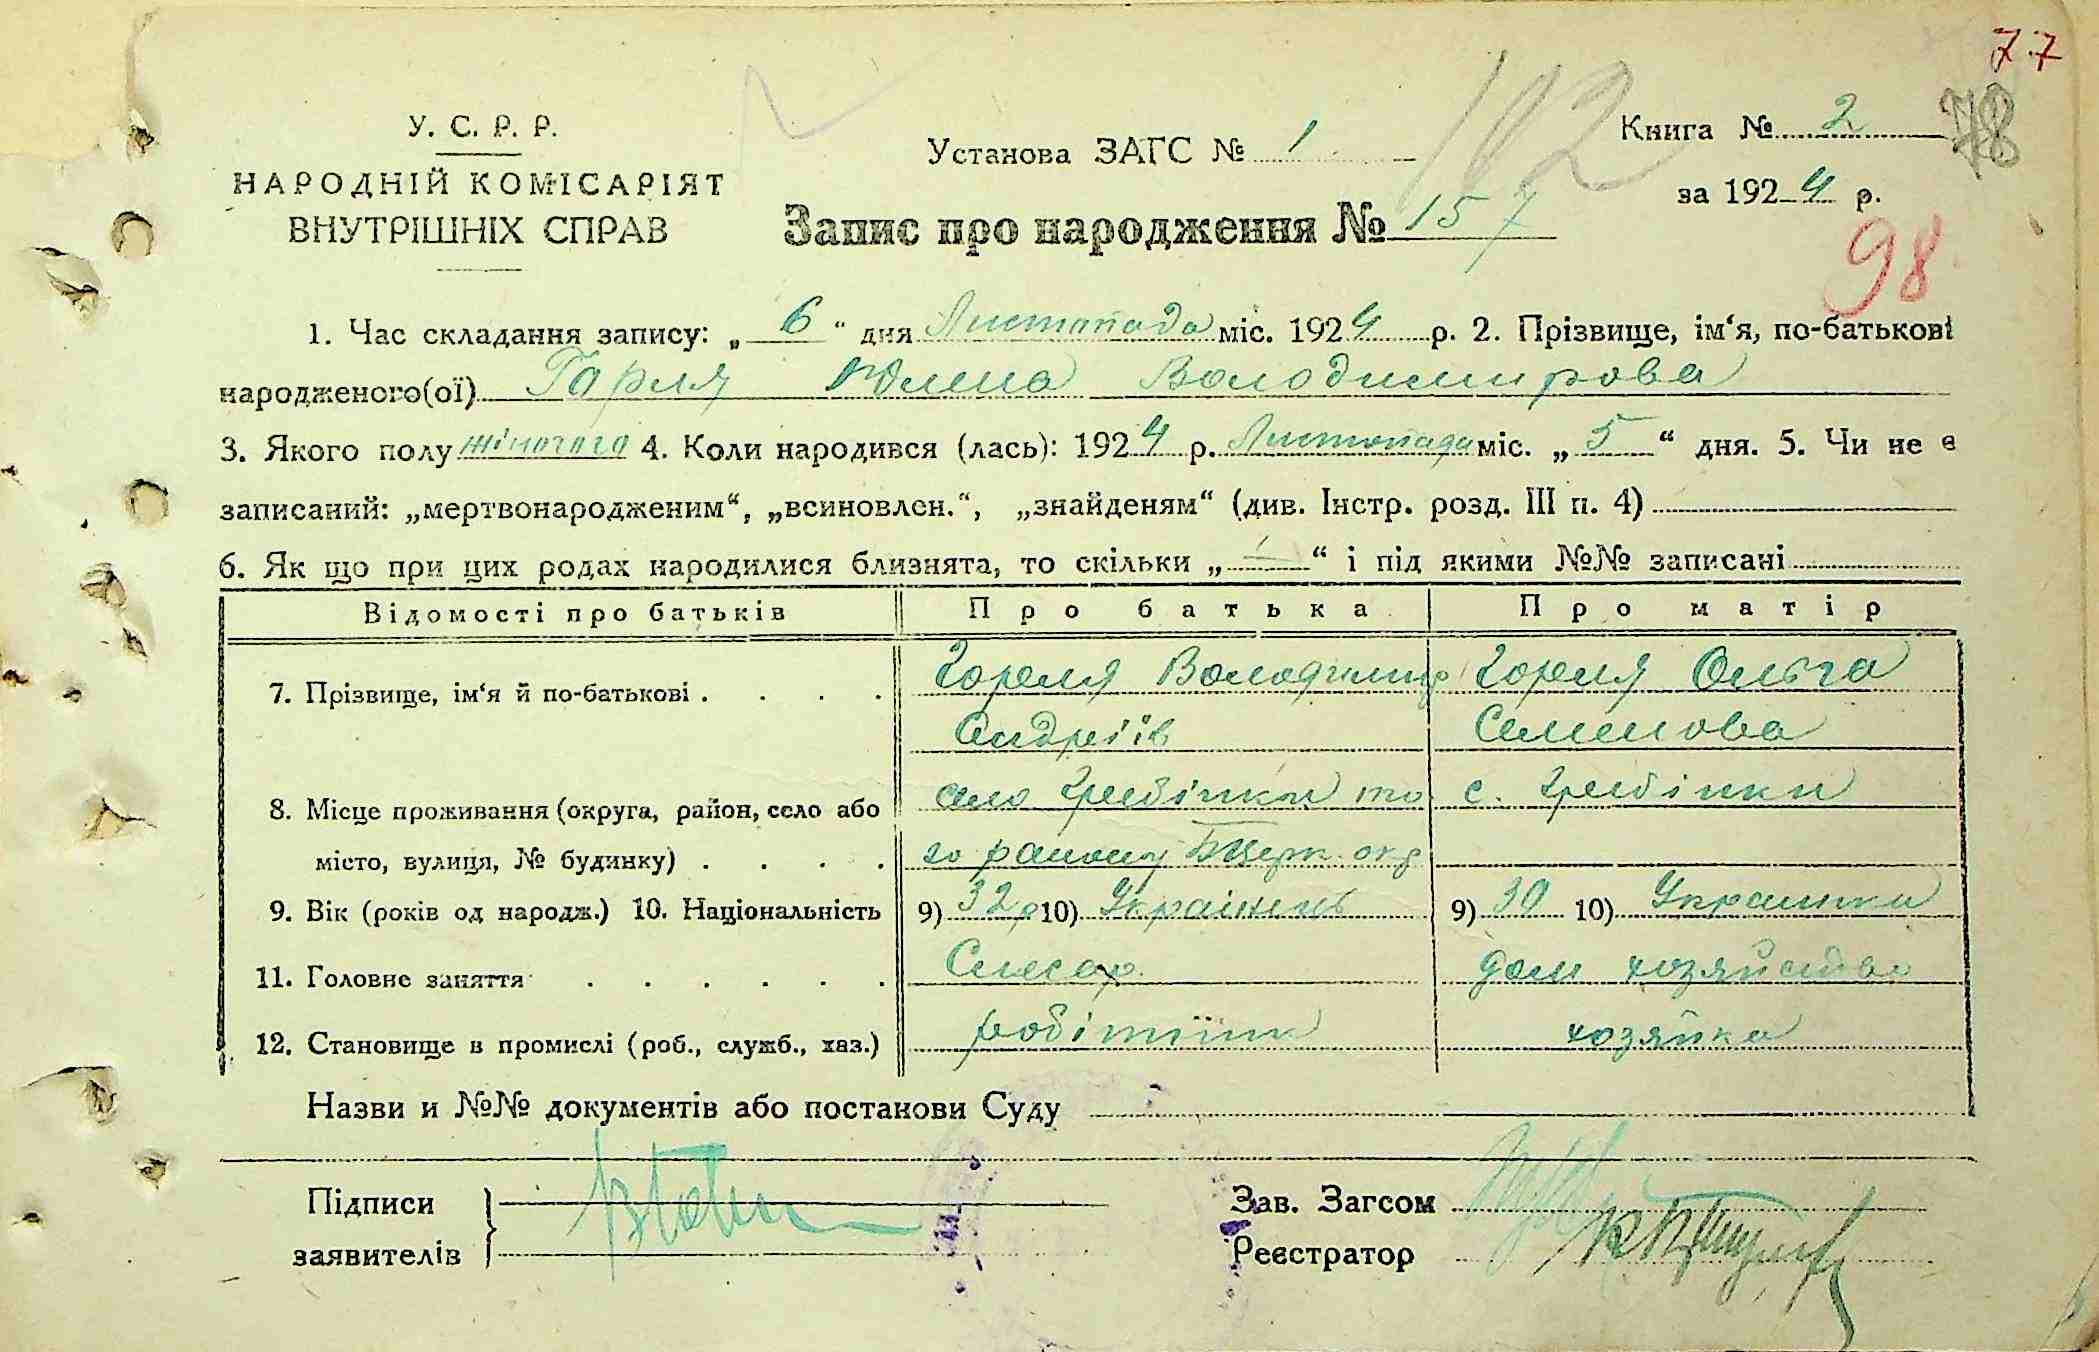 77
У. С. Р. Р.
НАРОДНІЙ КОМІСАРІЯТ
ВНУТРІШНІХ СПРАВ
Установа ЗАГС № 1
Книга № 2
78
за 1924 р.
102
Запис про народження № 157
98
1. Час складання запису: „ 6 “ дня Листопада міс. 1924 р. 2. Прізвище, ім‘я, по-батькові
народженого(ої) Володимирова
3. Якого полу жіночого 4. Коли народився (лась): 1924 р. Листопада міс. „ 5 “ дня. 5. Чи не є
записаний: „мертвонародженим“, „всиновлен.“, „знайденям“ (див. Інстр. розд. III п. 4)
6. Як що при цих родах народилися близнята, то скільки „ “ і під якими №№ записані
Відомості про батьків Про батька Про матір
7. Прізвище, ім‘я й по-батькові . . . . Гореля Володимир Гореля Ольга
Андріїв Семенова
8. Місце проживання (округа, район, село або село Гребінки то с. Гребінки
місто, вулиця, № будинку) . . . . го району Б Церк. окр
9. Вік (років од народж.) 10. Національність 9) 32 р 10) Українець 9) 30 10) Украінка
11. Головне заняття . . . . . . Слесар дом хозяйство
12. Становище в промислі (роб., служб., хаз.) робітник хозяйка
Назви и №№ документів або постанови Суду
Підписи
заявителів
Зав. Загсом
Реєстратор